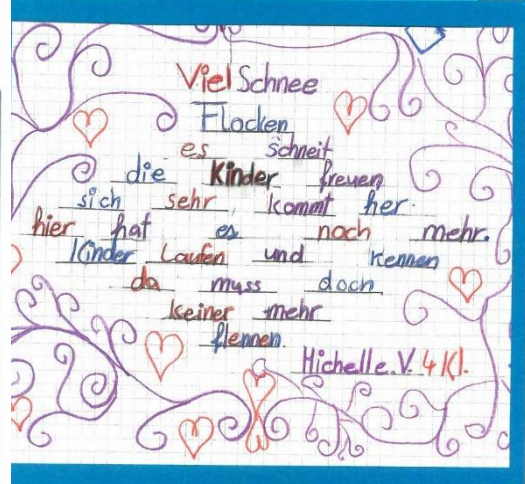 Viel Schnee
Flocken
es schneit
die Kinder freuen
sich sehr kommt her.
hier hat es noch mehr.
Kinder Laufen und rennen
da muss doch
keiner mehr
flennen.
Michelle.V. 4 Kl.